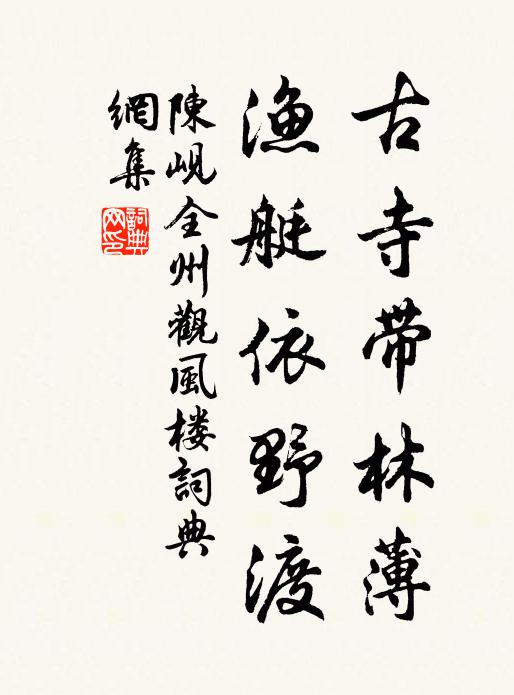 古寺带林薄
渔艇依野渡
陳峴全州觀風楼詞典
網集
詞典
网印